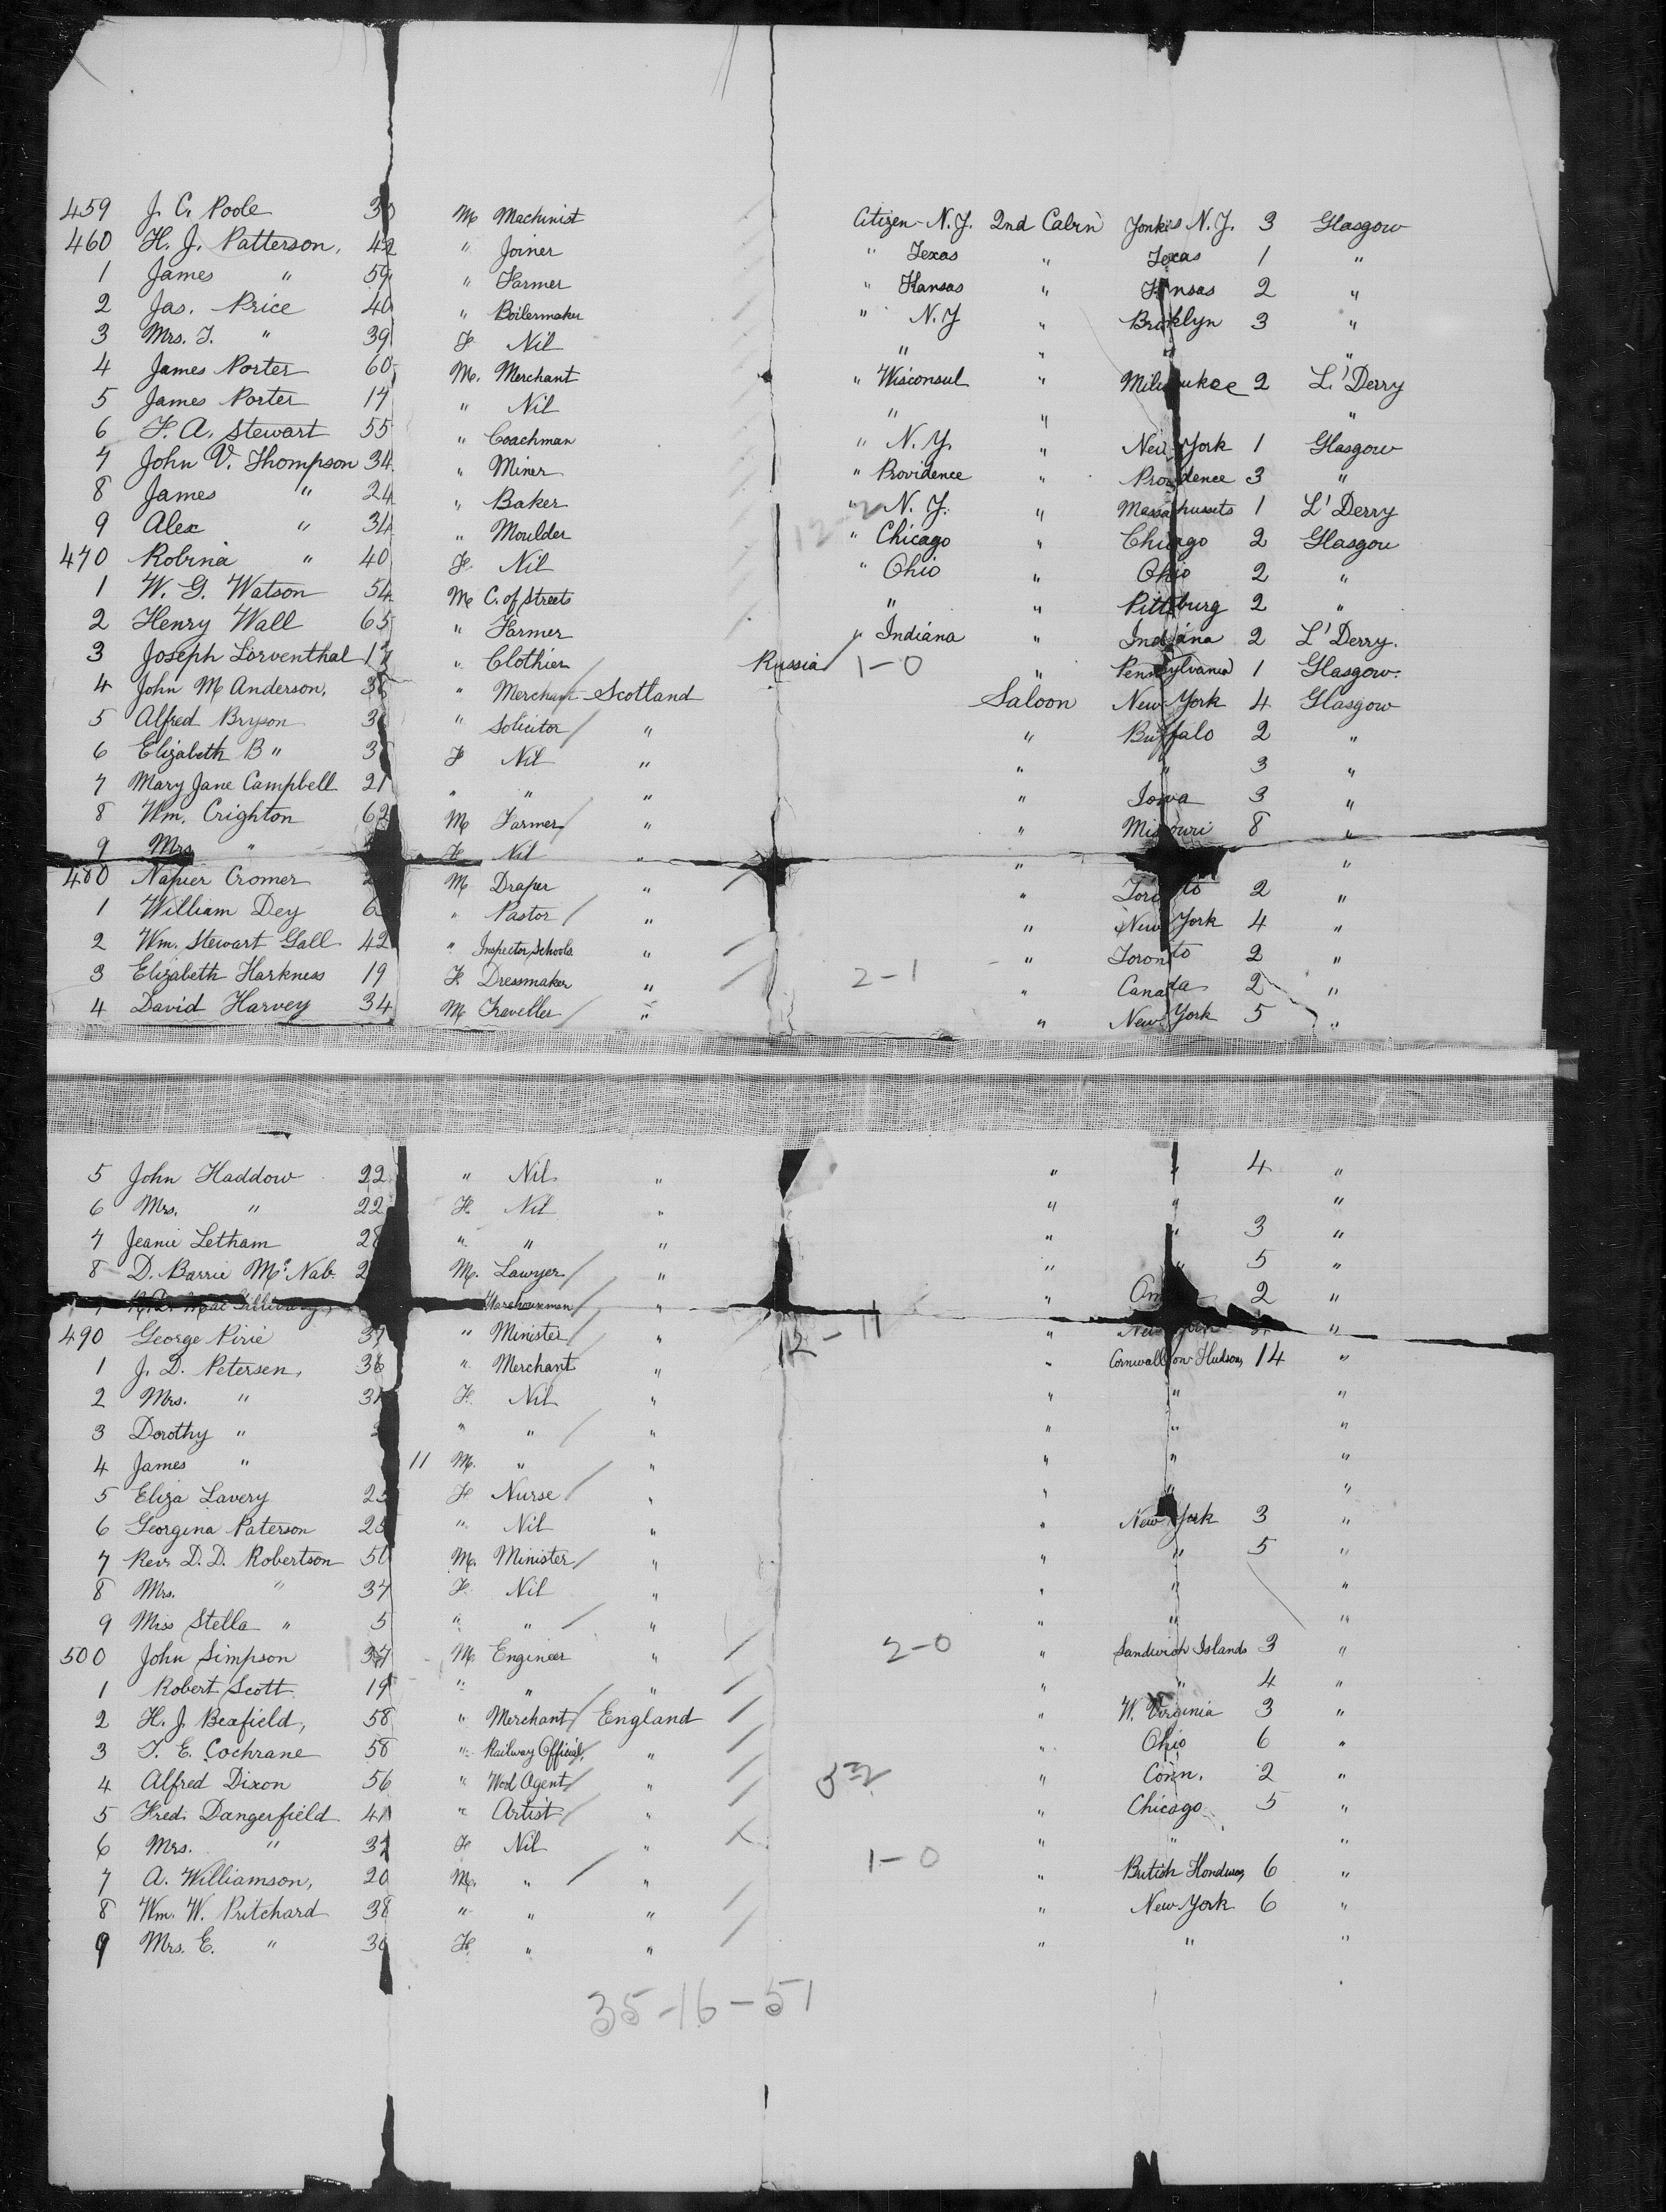 459 J. C. Poole 3 M Machinist Citizen - N.Y. 2nd Cabin Yonkers N.Y. 3 Glasgow
460 H. J. Patterson, 42 " Joiner " Texas " Texas 1 "
1 James " 59 " Farmer " Kansas " Kansas 2 "
2 Jas. Price 40 " Boilermaker " N.Y " Brooklyn 3 "
3 Mrs. J. " 39 F Nil " " " "
4 James Porter 60 M. Merchant " Wisconsul " Milwaukee 2 L'Derry
5 James Porter 17 " Nil " " "
6 F. A. Stewart 55 " Coachman " N.Y. New York 1 Glasgow
7 John V. Thompson 34 " Miner " Providence " Providence 3 "
8 James " 24 " Baker " N.Y. " Massachusets 1 L'Derry
9 Alex " 34 " Moulder 12-2 " Chicago " Chicago 2 Glasgow
470 Robina " 40 F Nil " Ohio " Ohio 2 "
1 W. G. Watson 54 M C. of Streets " " Pittsburg 2 "
2 Henry Wall 65 " Farmer " Indiana " Indiana 2 L'Derry.
3 Joseph Lorventhal 17 " Clothier Russia 1-0 " Pennsylvania 1 Glasgow.
4 John M Anderson, 3 " Merchant Scotland Saloon New York 4 Glasgow
5 Alfred Bryson 3 " Solicitor " " Buffalo 2 "
6 Elizabeth B " 3 F Nil " " " 3 "
7 Mary Jane Campbell 21 " " " " Iowa 3 "
8 Wm. Crighton 62 M Farmer " " Missouri 8 "
9 Mrs " F Nil " " "
480 Napier Cromer 2 M Draper " " Toronto 2 "
1 William Dey 6 " Pastor " " New York 4 "
2 Wm. Stewart Gall 42 " Inspector Schools " " Toronto 2 "
3 Elizabeth Harkness 19 F. Dressmaker " 2-1 " Canada 2 "
4 David Harvey 34 M Traveller " " New York 5 "
5 John Haddow 22 " Nil " " " 4 "
6 Mrs. " 22 F. Nil " " " "
7 Jeanie Letham 28 " " " " " 3 "
8 D. Barrie Mc Nab. 2 M. Lawyer " " " 5 "
Mac Warehouseman " " 2 "
490 George Pirie 37 " Minister " 12-11 " New York "
1 J. D. Petersen, 36 " Merchant " " Cornwall on Hudson, 14 "
2 Mrs. " 31 F. Nil " " " "
3 Dorothy " " " " " " "
4 James " 11 M. " " " " "
5 Eliza Lavery 25 F Nurse " " " "
6 Georgina Paterson 25 " Nil " " New York 3 "
7 Rev. D. D. Robertson 50 M. Minister " " " 5 "
8 Mrs. " 37 F. Nil " " " "
9 Miss Stella " 5 " " " " " "
500 John Simpson 37 M Engineer " 2-0 " Sandwich Islands 3 "
1 Robert Scott 19 " " " " " 4 "
2 H. J. Bexfield, 58 " Merchant England " W. Virginia 3 "
3 T. E. Cochrane 58 " Railway Official, " " Ohio 6 "
4 Alfred Dixon 56 " Wool Agent " " Conn. 2 "
5 Fred. Dangerfield 41 " Artist " " Chicago 5 "
6 Mrs. " 32 F Nil " " " "
7 A. Williamson, 20 M. " " 1-0 " British Honduras, 6 "
8 Wm. W. Pritchard 38 " " " " New York 6 "
9 Mrs. E. " 30 F. " " " " "
35-16-51